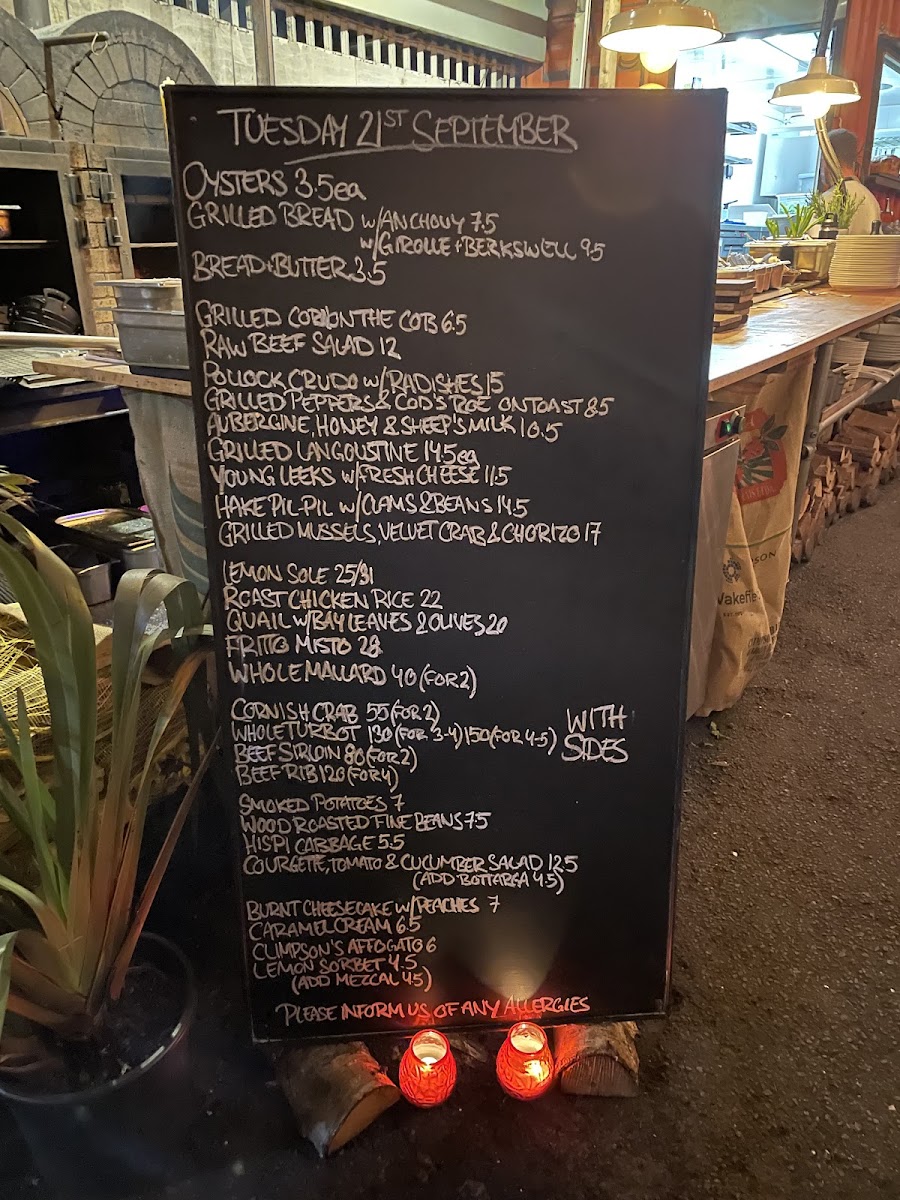 TUESDAY 21ST SEPTEMBER
OYSTERS 3.5ea
GRILLED BREAD w/ANCHOVY 7.5
w/GIROLLE+BERKSWELL 9.5
BREAD+BUTTER 3.5
GRILLED CORN ON THE COB 6.5
RAW BEEF SALAD 12
POLLOCK CRUDO w/RADISHES 15
GRILLED PEPPERS & COD'S ROE ON TOAST 8.5
AUBERGINE, HONEY & SHEEP'S MILK 10.5
GRILLED LANGOUSTINE 14.5ea
YOUNG LEEKS w/FRESH CHEESE 11.5
HAKE PIL-PIL w/CLAMS & BEANS 14.5
GRILLED MUSSELS, VELVET CRAB & CHORIZO 17
LEMON SOLE 25/31
ROAST CHICKEN RICE 22
QUAIL w/BAY LEAVES & OLIVES 20
FRITTO MISTO 28
WHOLE MALLARD 40 (FOR 2)
CORNISH CRAB 55 (FOR 2)
WHOLE TURBOT 130 (FOR 3-4) 150 (FOR 4-5)
BEEF SIRLOIN 80 (FOR 2)
BEEF RIB 120 (FOR 4)
WITH
SIDES
SMOKED POTATOES 7
WOOD ROASTED FINE BEANS 7.5
HISPI CABBAGE 5.5
COURGETTE, TOMATO & CUCUMBER SALAD 12.5
(ADD BOTTARGA 4.5)
BURNT CHEESECAKE w/PEACHES 7
CARAMEL CREAM 6.5
CLIMPSON'S AFFOGATO 6
LEMON SORBET 4.5
(ADD MEZCAL 4.5)
PLEASE INFORM US OF ANY ALLERGIES